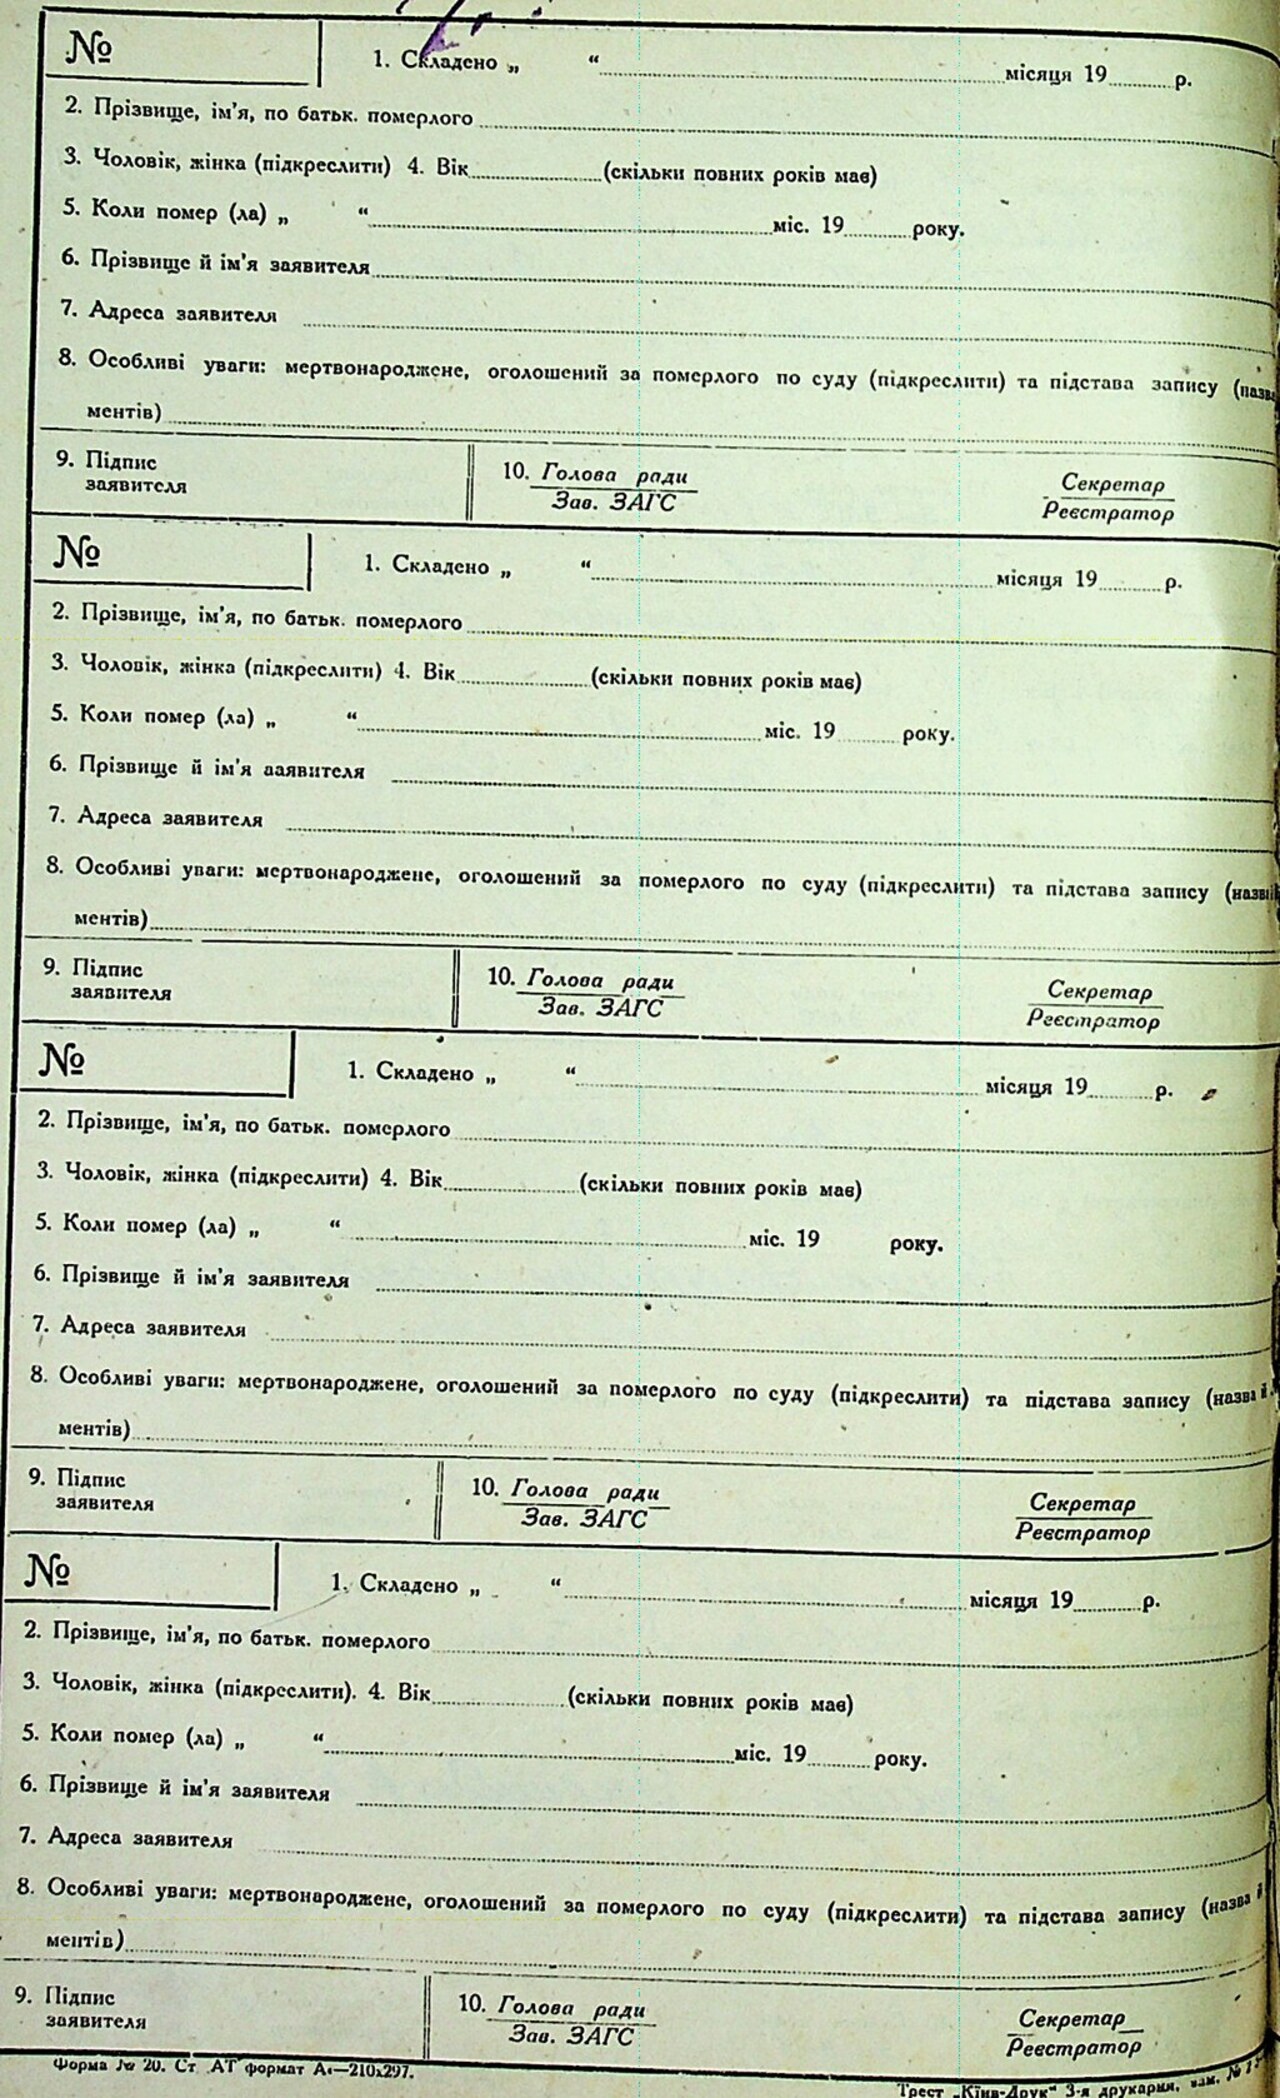 №
1. Складено „ “ місяця 19 р.
2. Прізвище, ім'я, по батьк. померлого
3. Чоловік, жінка (підкреслити) 4. Вік (скільки повних років має)
5. Коли помер (ла) „ “ міс. 19 року.
6. Прізвище й ім'я заявителя
7. Адреса заявителя
8. Особливі уваги: мертвонароджене, оголошений за померлого по суду (підкреслити) та підстава запису (назва
ментів)
9. Підпис заявителя
10. Голова ради
Зав. ЗАГС
Секретар
Реєстратор
№
1. Складено „ “ місяця 19 р.
2. Прізвище, ім'я, по батьк. померлого
3. Чоловік, жінка (підкреслити) 4. Вік (скільки повних років має)
5. Коли помер (ла) „ “ міс. 19 року.
6. Прізвище й ім'я заявителя
7. Адреса заявителя
8. Особливі уваги: мертвонароджене, оголошений за померлого по суду (підкреслити) та підстава запису (назва
ментів)
9. Підпис заявителя
10. Голова ради
Зав. ЗАГС
Секретар
Реєстратор
№
1. Складено „ “ місяця 19 р.
2. Прізвище, ім'я, по батьк. померлого
3. Чоловік, жінка (підкреслити) 4. Вік (скільки повних років має)
5. Коли помер (ла) „ “ міс. 19 року.
6. Прізвище й ім'я заявителя
7. Адреса заявителя
8. Особливі уваги: мертвонароджене, оголошений за померлого по суду (підкреслити) та підстава запису (назва й
ментів)
9. Підпис заявителя
10. Голова ради
Зав. ЗАГС
Секретар
Реєстратор
№
1. Складено „ “ місяця 19 р.
2. Прізвище, ім'я, по батьк. померлого
3. Чоловік, жінка (підкреслити). 4. Вік (скільки повних років має)
5. Коли помер (ла) „ “ міс. 19 року.
6. Прізвище й ім'я заявителя
7. Адреса заявителя
8. Особливі уваги: мертвонароджене, оголошений за померлого по суду (підкреслити) та підстава запису (назва й
ментів)
9. Підпис заявителя
10. Голова ради
Зав. ЗАГС
Секретар
Реєстратор
Форма № 20. Ст. АТ формат А₄—210х297.
Трест „Київ-Друк“ 3-я друкарня, зам. №